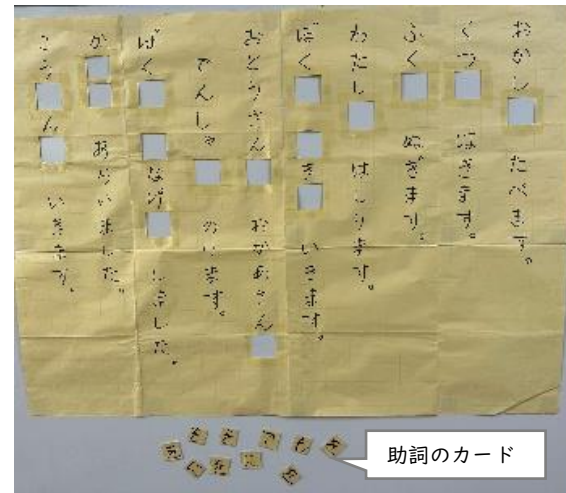 おかし□ たべます。
くつ□ はきます。
ふく□ ぬぎます。
わたし□ はしります。
ぼく□ □き□ いきます。
おとうさん□ おかあさん□
でんしゃ□ のります。
ぼく□ □なげ□ しました。
か□□ あらいました。
こう□ん□ いきます。
助詞のカード